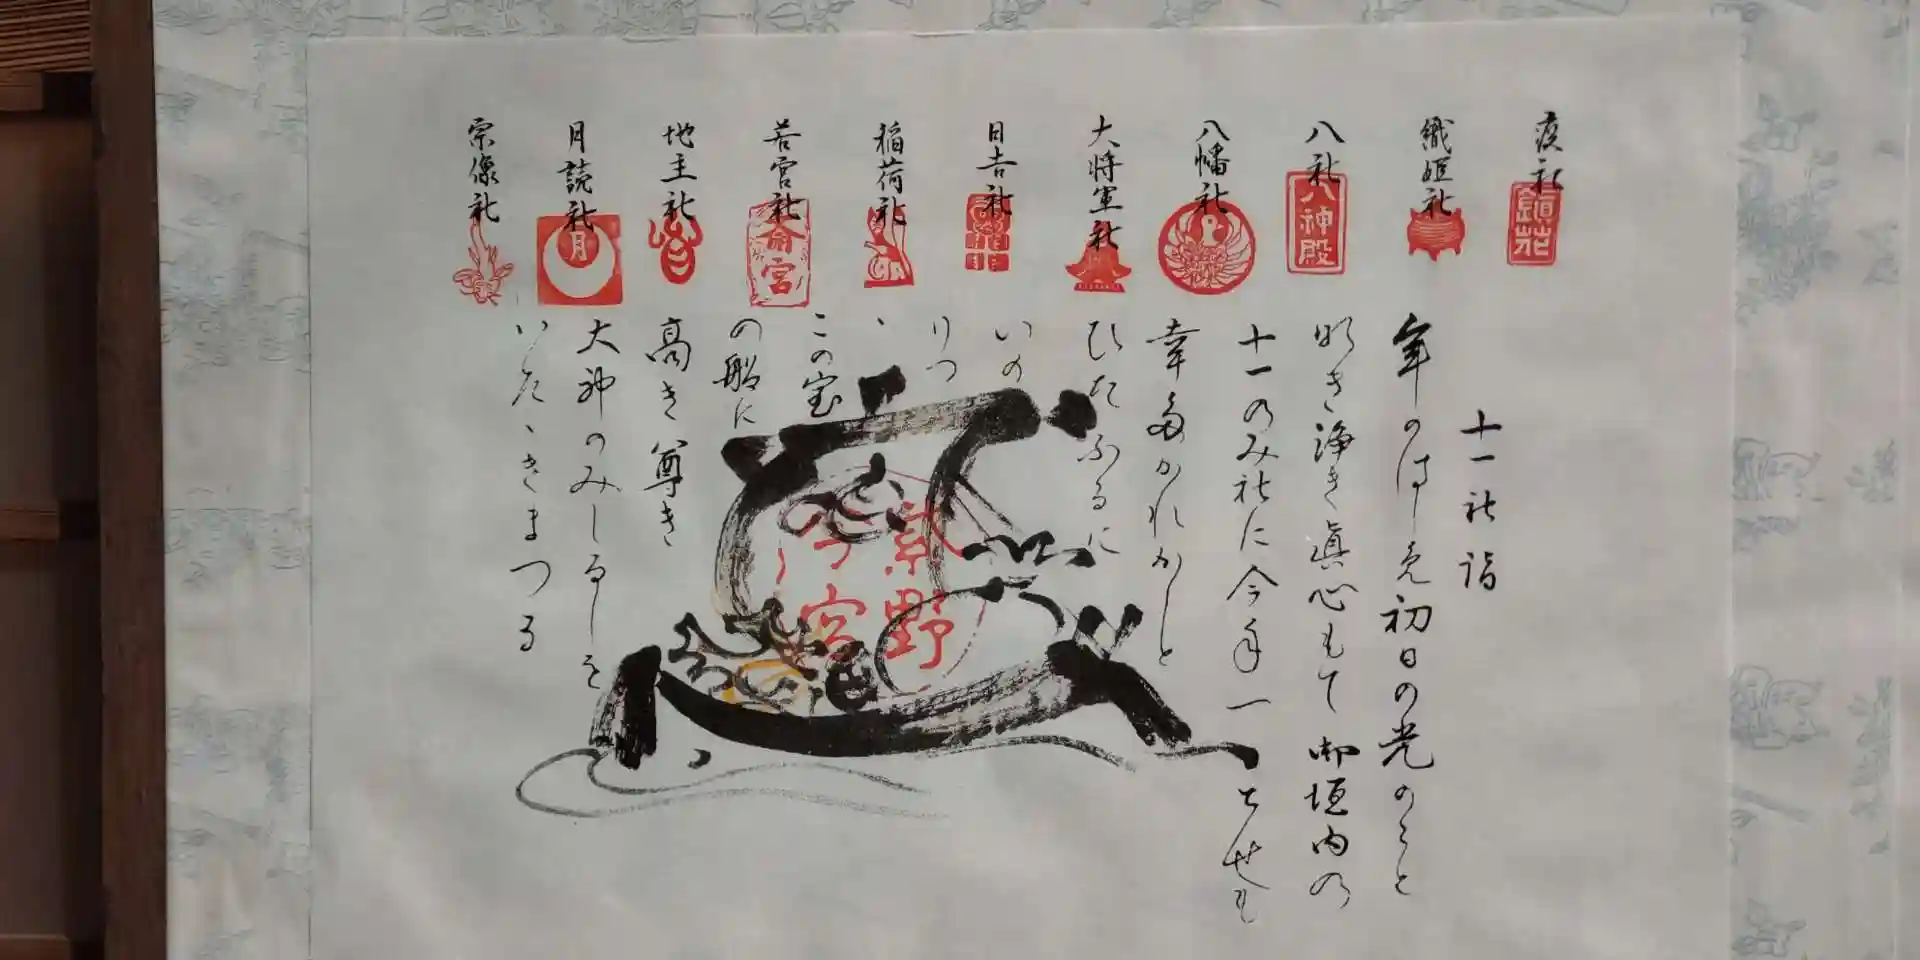 疫社
織姫社
八社
八幡社
大将軍社
日吉社
稲荷社
若宮社
地主社
月読社
宗像社
鎮花
八神殿
若宮
月
十一社詣
年のはしめ初日の光のこと
明き浄き真心もて御垣内の
十一のみ社に今年一とせも
幸多かれかしと
ひたふるに
いの
りつ
ゝ
この宝
の船に
高き尊き
大神のみしるしを
いたゝきまつる
紫野
今宮